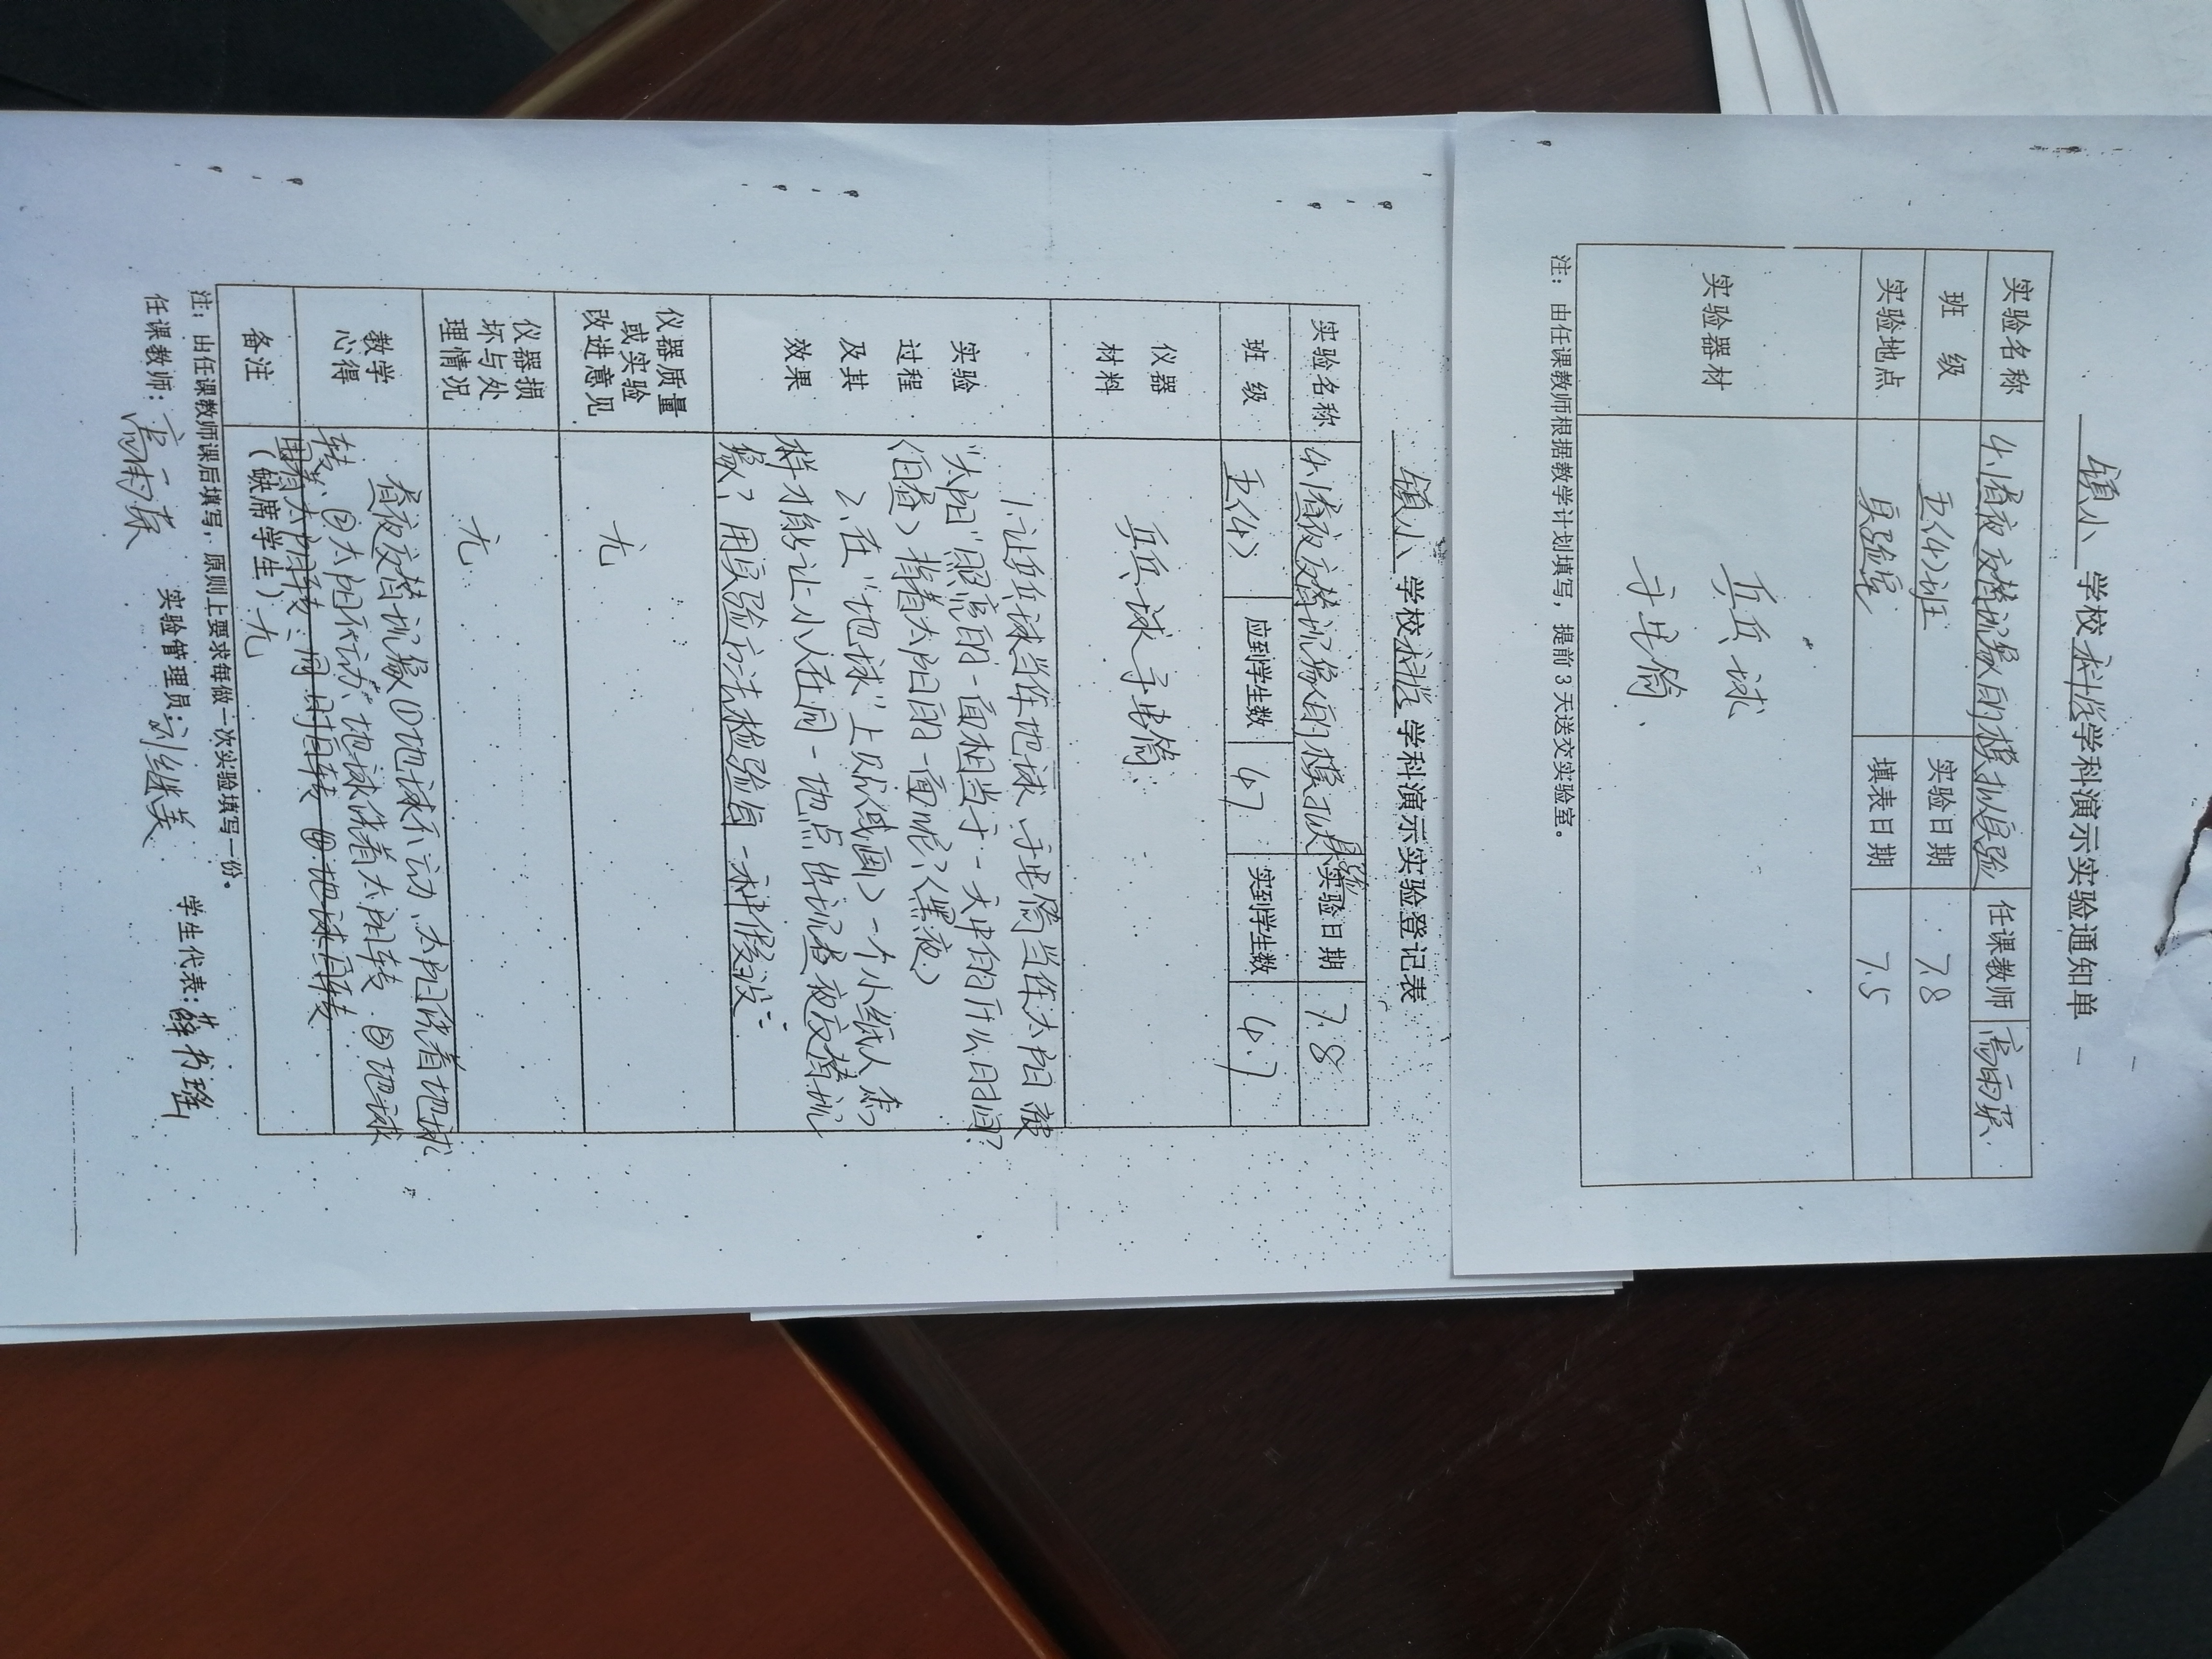 镇小 学校科学学科演示实验通知单
实验名称 4.1昼夜交替现象的模拟实验 任课教师 高雨荪
班 级 五(4)班 实验日期 7.8
实验地点 实验室 填表日期 7.5
实验器材 乒乓球
手电筒、
注： 由任课教师根据教学计划填写，提前 3 天送交实验室。
镇小 学校科学 学科演示实验登记表
实验名称 4.1昼夜交替现象的模拟实验 实验日期 7.8
班 级 五(4) 应到学生数 47 实到学生数 47
仪器
材料
乒乓球 手电筒
实验
过程
及其
效果
1.让乒乓球当作地球、手电筒当作太阳 被
“太阳”照亮的一面相当于一天中的什么时间?
(白昼) 背着太阳的一面呢?(黑夜)
2、在“地球”上贴(或画)一个小纸人 怎
样才能让小人在同一地点 出现昼夜交替现
象? 用实验方法检验每一种假设
仪器质量
或实验
改进意见
无
仪器损
坏与处
理情况
无
教学
心得
昼夜交替现象①地球不动、太阳绕着地球
转、②太阳不动、地球绕着太阳转 ③地球
围着太阳转、同时自转 ④地球自转
备注 (缺席学生)无
注：由任课教师课后填写，原则上要求每做一次实验填写一份。
任课教师: 高雨荪 实验管理员: 刘继美 学生代表: 薛书瑶